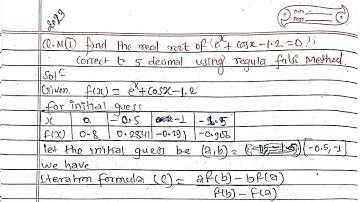 2023
Date
Page
Q.N.① find the real root of (e^x + cosx - 1.2 = 0)
correct to 5 decimal using regula falsi Method.
Solⁿ
Given, f(x) = e^x + cosx - 1.2
for initial guess
x 0 -0.5 -1 -1.5
f(x) 0.8 0.2841 -0.291 -0.906
let the initial guess be (a,b) = (-0.5, -1)
we have
Iteration formula (c) = af(b) - bf(a)
f(b) - f(a)